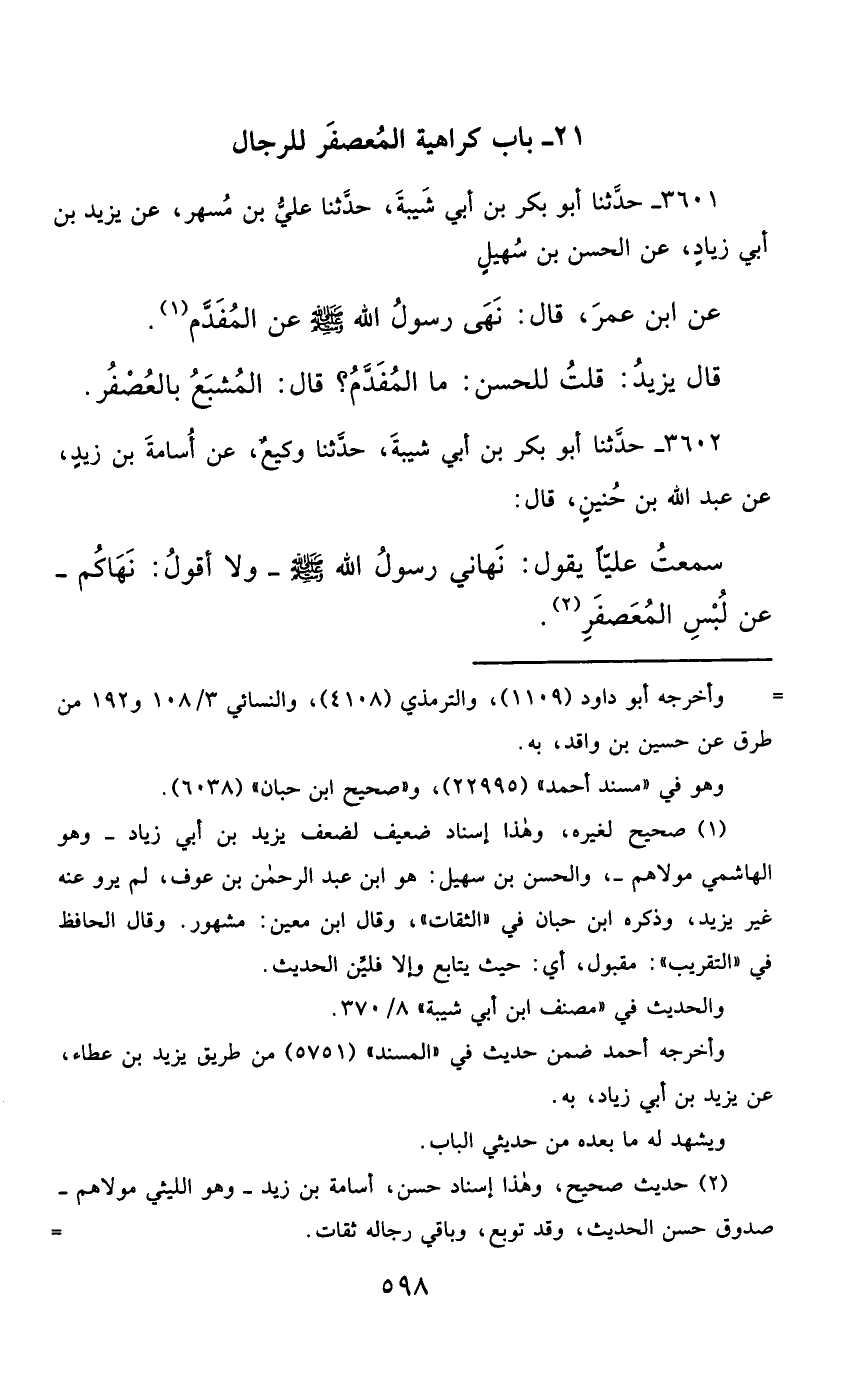 ٢١ـ باب كراهية المُعصفَر للرجال
٣٦٠١ـ حدَّثنا أبو بكر بن أبي شَيبةَ، حدَّثنا عليُّ بن مُسهر، عن يزيد بن
أبي زيادٍ، عن الحسن بن سُهيلٍ
عن ابن عمرَ، قال: نَهَى رسولُ الله ﷺ عن المُفَدَّم(١).
قال يزيدُ: قلتُ للحسن: ما المُفَدَّمُ؟ قال: المُشبَعُ بالعُصْفُر.
٣٦٠٢ـ حدَّثنا أبو بكر بن أبي شيبةَ، حدَّثنا وكيعٌ، عن أُسامةَ بن زيدٍ،
عن عبد الله بن حُنينٍ، قال:
سمعتُ عليّاً يقول: نَهاني رسولُ الله ﷺ ـ ولا أقولُ: نَهَاكُم ـ
عن لُبْسِ المُعَصفَرِ(٢).
= وأخرجه أبو داود (١١٠٩)، والترمذي (٤١٠٨)، والنسائي ١٠٨/٣ و١٩٢ من
طرق عن حسين بن واقد، به.
وهو في «مسند أحمد» (٢٢٩٩٥)، و«صحيح ابن حبان» (٦٠٣٨).
(١) صحيح لغيره، وهٰذا إسناد ضعيف لضعف يزيد بن أبي زياد ـ وهو
الهاشمي مولاهم ـ، والحسن بن سهيل: هو ابن عبد الرحمٰن بن عوف، لم يرو عنه
غير يزيد، وذكره ابن حبان في «الثقات»، وقال ابن معين: مشهور. وقال الحافظ
في «التقريب»: مقبول، أي: حيث يتابع وإلا فليِّن الحديث.
والحديث في «مصنف ابن أبي شيبة» ٣٧٠/٨.
وأخرجه أحمد ضمن حديث في «المسند» (٥٧٥١) من طريق يزيد بن عطاء،
عن يزيد بن أبي زياد، به.
ويشهد له ما بعده من حديثي الباب.
(٢) حديث صحيح، وهٰذا إسناد حسن، أسامة بن زيد ـ وهو الليثي مولاهم ـ
صدوق حسن الحديث، وقد توبع، وباقي رجاله ثقات. =
٥٩٨